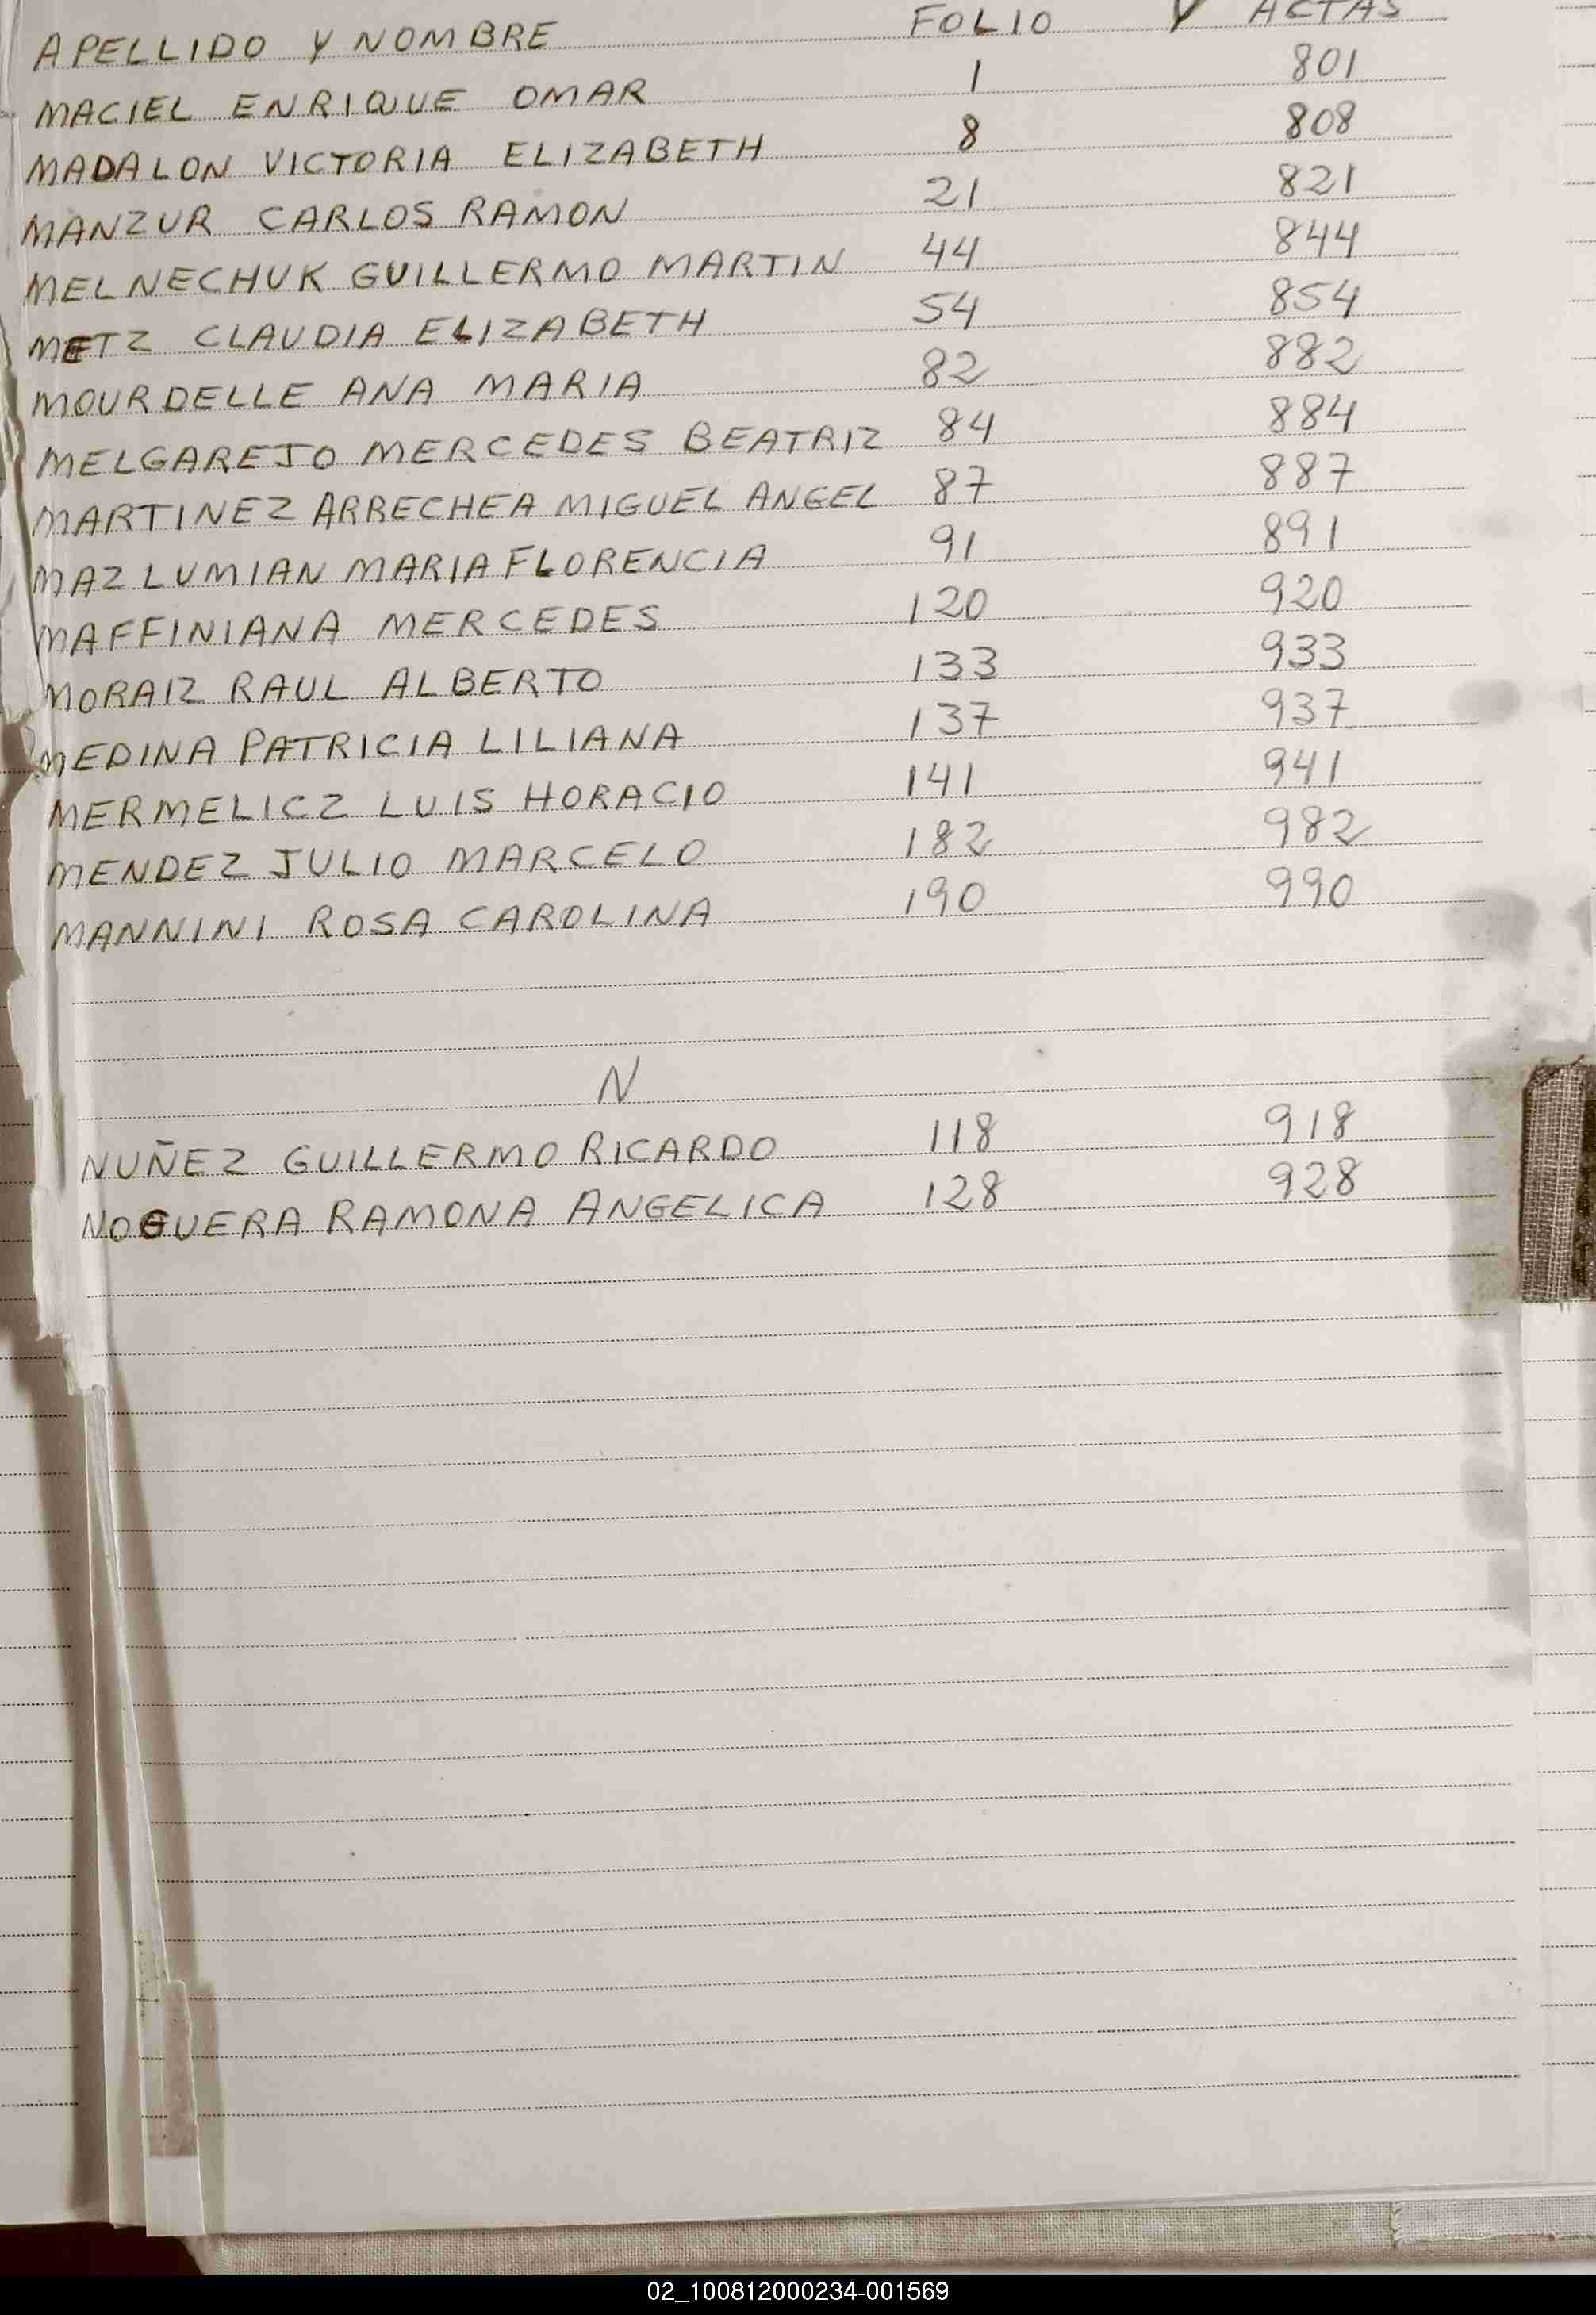 APELLIDO Y NOMBRE FOLIO Y ACTAS
MACIEL ENRIQUE OMAR 1 801
MADALON VICTORIA ELIZABETH 8 808
MANZUR CARLOS RAMON 21 821
MELNECHUK GUILLERMO MARTIN 44 844
METZ CLAUDIA ELIZABETH 54 854
MOURDELLE ANA MARIA 82 882
MELGAREJO MERCEDES BEATRIZ 84 884
MARTINEZ ARRECHEA MIGUEL ANGEL 87 887
MAZLUMIAN MARIA FLORENCIA 91 891
MAFFINIANA MERCEDES 120 920
MORAIZ RAUL ALBERTO 133 933
MEDINA PATRICIA LILIANA 137 937
MERMELICZ LUIS HORACIO 141 941
MENDEZ JULIO MARCELO 182 982
MANNINI ROSA CAROLINA 190 990
N
NUÑEZ GUILLERMO RICARDO 118 918
NOGUERA RAMONA ANGELICA 128 928
02_100812000234-001569